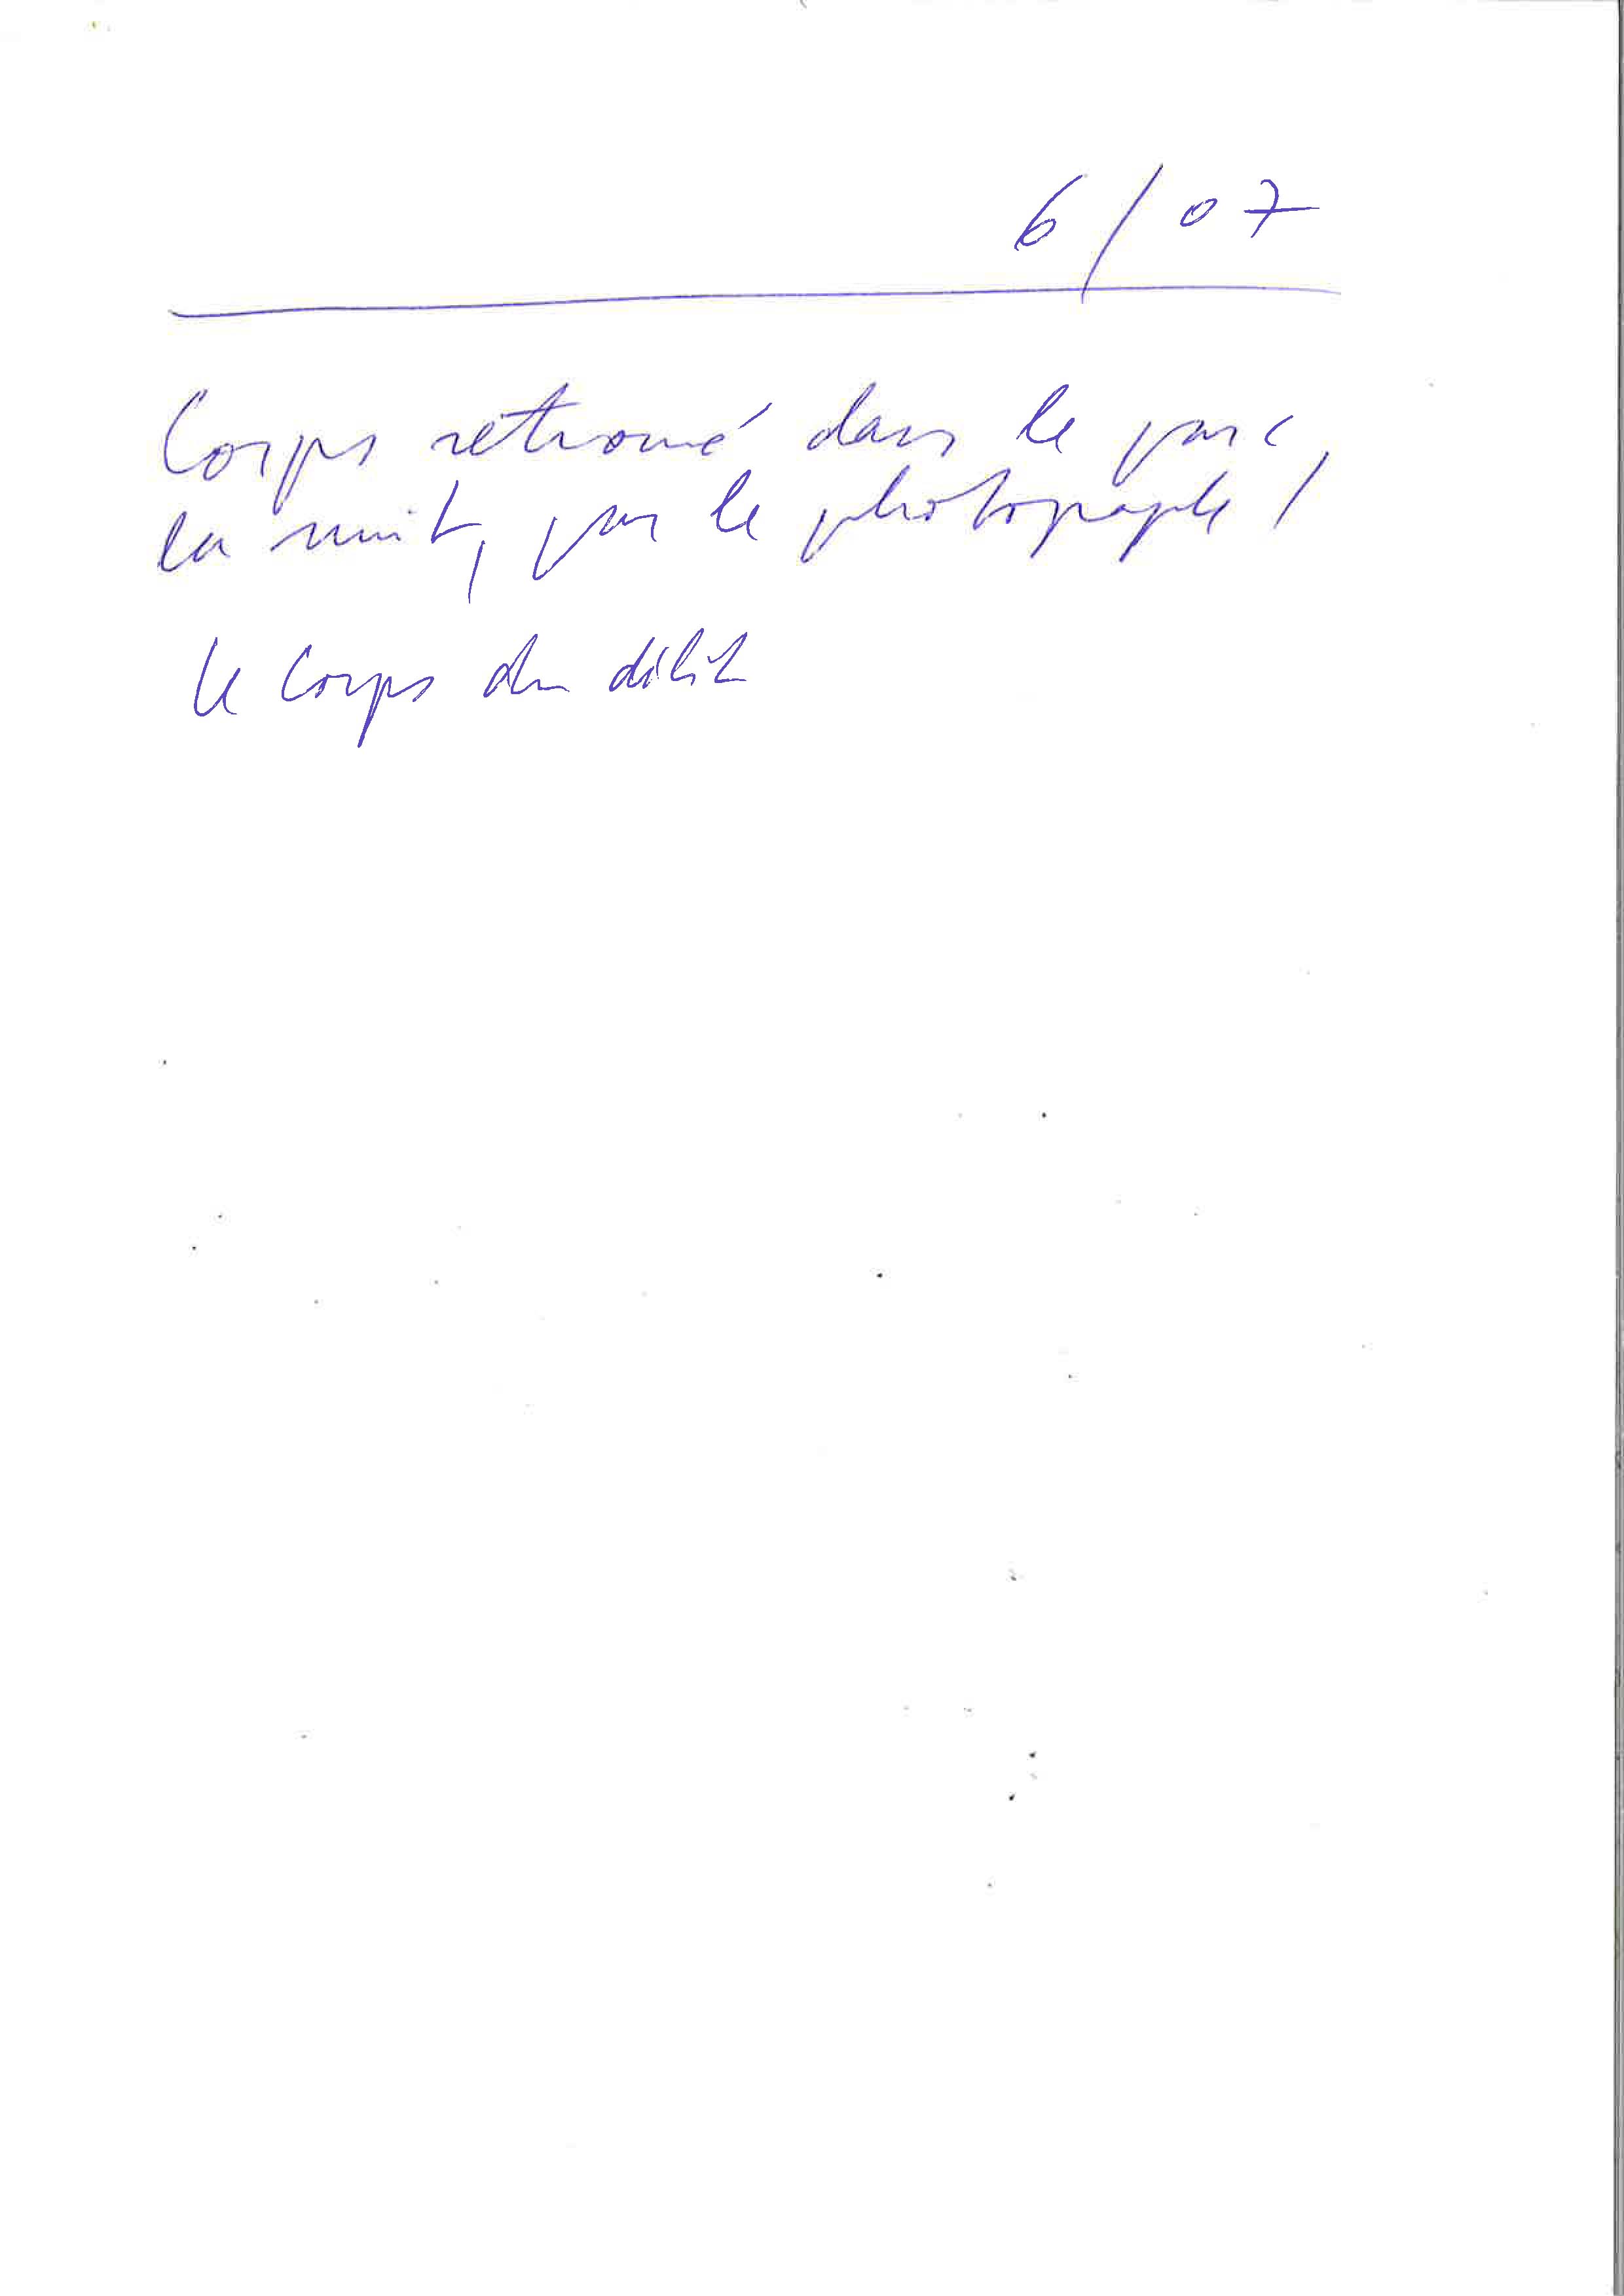 6/07
Corps retrouvé dans le parc
la nuit, par le photographe !
Le Corps du délit